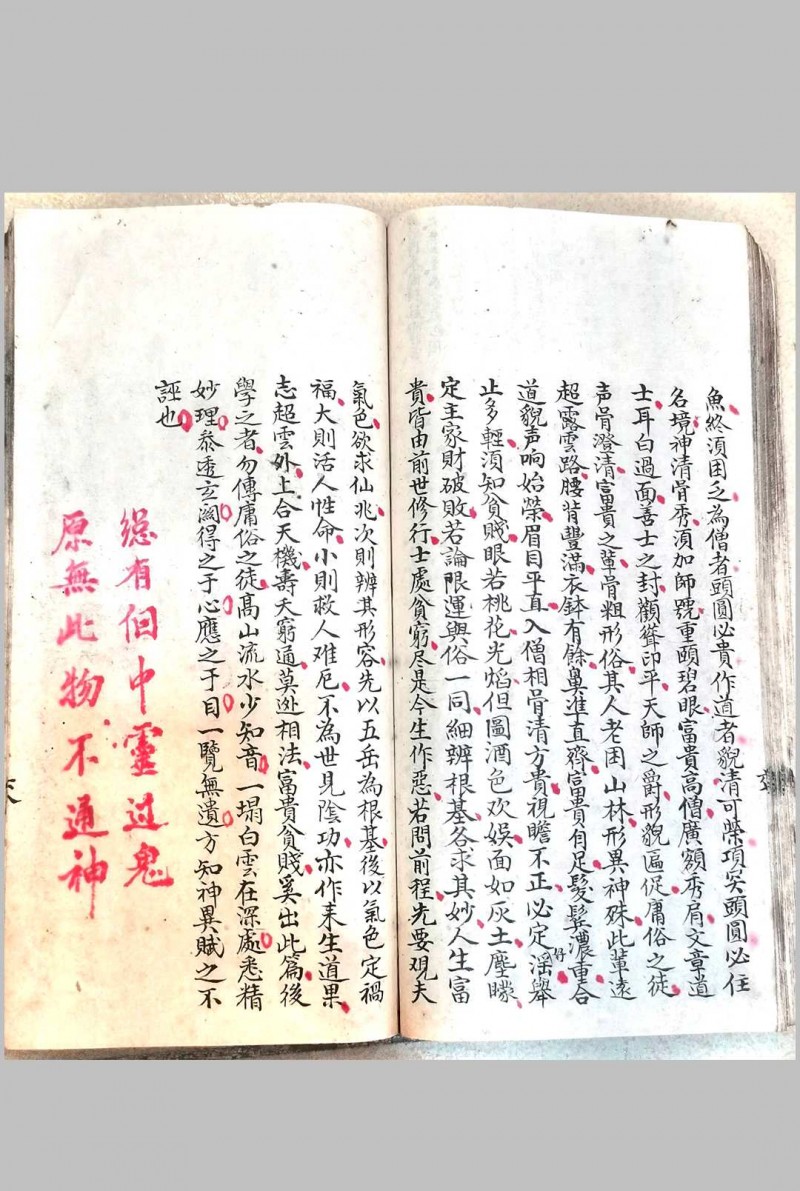 魚終須困乏為僧者頭圓必貴作道者貌清可榮項突頭圓必住
名境神清骨秀須加師號重頤碧眼富貴高僧廣額秀眉文章道
士耳白過面善士之封觀聳印平天師之爵形貌區促庸俗之徒
声骨澄清富貴之輩骨粗形俗其人老困山林形異神殊此輩遠
超露雲路腰背豐滿衣鉢有餘鼻準直齊富貴自足髮鬓濃重合
道貌声响始榮眉目平直入僧相骨清方貴視瞻不正必定滛舉
好
止多輕須知貧賤眼若桃花光焰但圖酒色欢娛面如灰土塵矇
定主家財破敗若論限運與俗一同細辨根基各求其妙人生富
貴皆由前世修行士處貧窮尽是今生作惡若問前程先要观夫
氣色欲求仙兆次則辨其形容先以五岳為根基後以氣色定禍
福大則活人性命小則救人难厄不為世見陰功亦作来生道果
志超雲外上合天機壽夭窮通莫迯相法富貴貧賤奚出此篇後
學之者勿傳庸俗之徒髙山流水少知音一塌白雲在深處悉精
妙理叅透玄關得之于心應之于目一覽無遺方知神異賦之不
誣也
總有個中靈过鬼
原無此物不通神